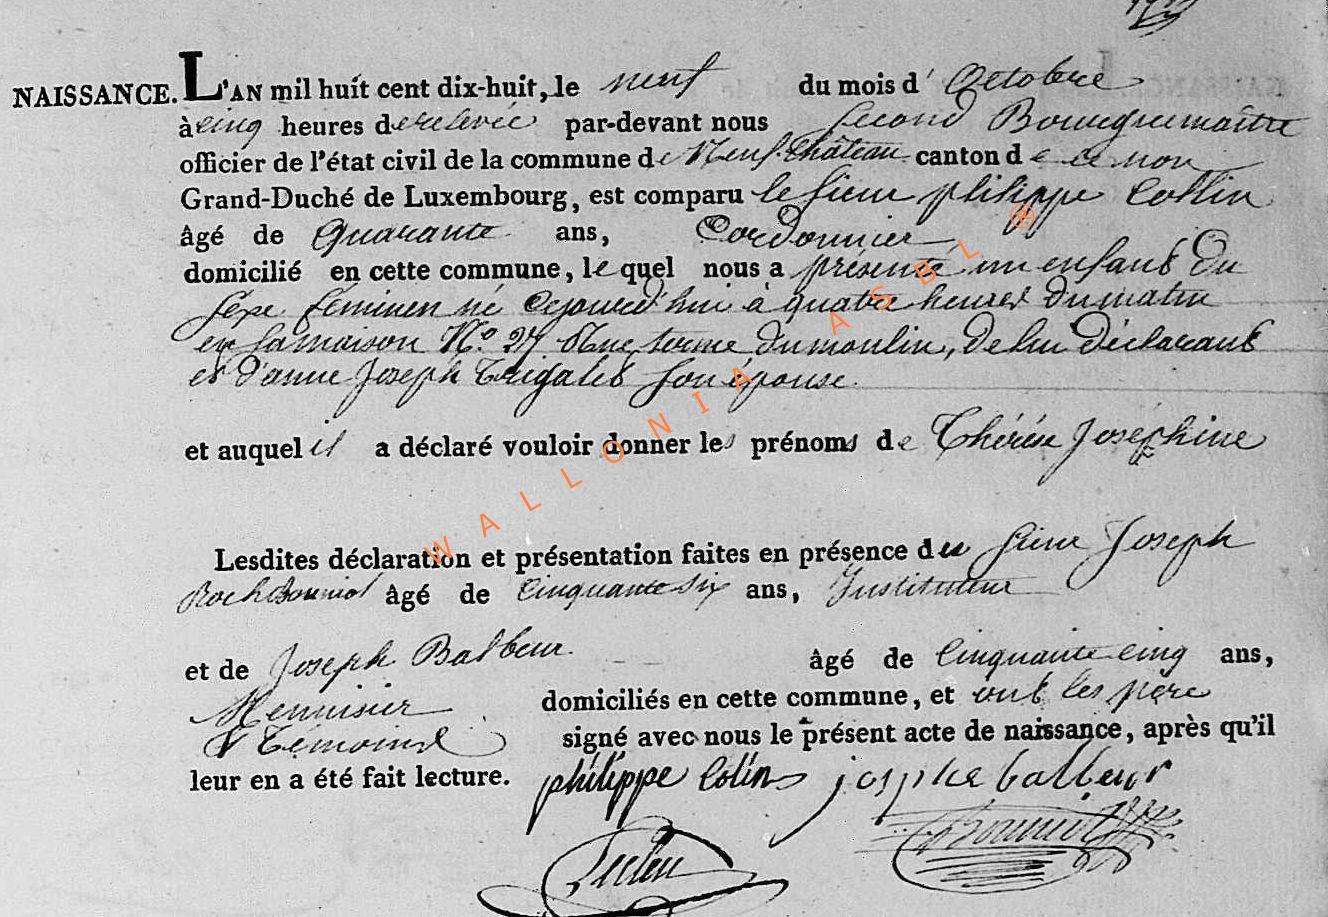 NAISSANCE. L'AN mil huit cent dix-huit, le neuf du mois d'Octobre
à cinq heures de relevée par-devant nous Second Bourguemaître
officier de l'état civil de la commune de Neufchâteau canton de ce nom
Grand-Duché de Luxembourg, est comparu le sieur philippe Collin
âgé de Quarante ans, Cordonnier
domicilié en cette commune, lequel nous a présenté un enfant Du
sexe féminin né cejourd'hui à quatre heures du matin
en sa maison N.º 27 Rue terme du moulin, de lui déclarant
et d'anne Joseph Trigalet son épouse.
et auquel il a déclaré vouloir donner les prénoms de Thérèse Joséphine
Lesdites déclaration et présentation faites en présence du sieur Joseph
Roch Bonniol âgé de cinquante six ans, Instituteur
et de Joseph Balbeur. âgé de cinquante cinq ans,
Menuisier domiciliés en cette commune, et ont les père
& témoins signé avec nous le présent acte de naissance, après qu'il
leur en a été fait lecture. philippe Colin josphe balbeur
Bonniol
WALLONIA ASBL ®